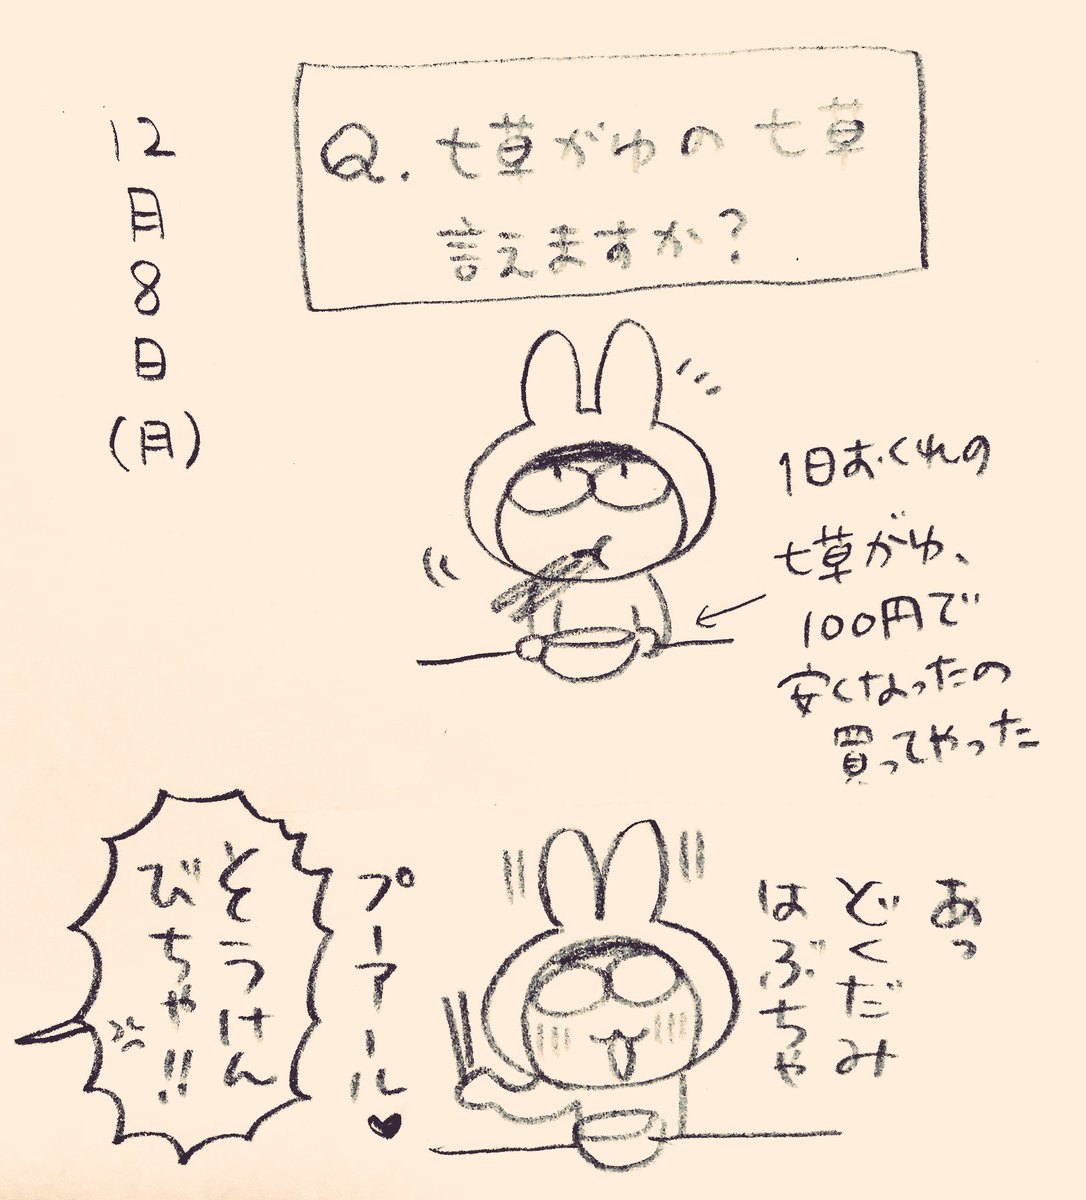 12月8日(月)
Q. 七草がゆの七草
言えますか?
1日おくれの
七草がゆ、
100円で
安くなったの
買ってやった
あっ
どくだみ
はぶちゃ
プーアール♥
そうけん
びちゃ!!